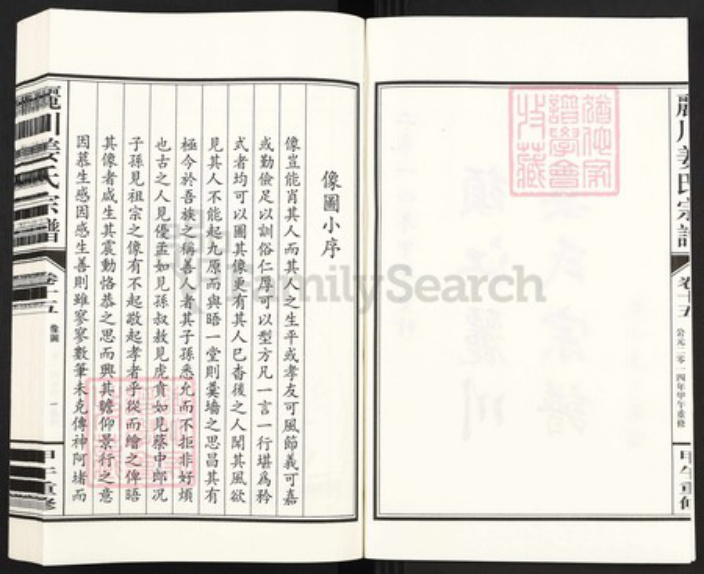 麗川姜氏宗譜
卷十五
公元二零一四年甲午重修
甲午重修
像圖小序
像豈能肖其人而其人之生平或孝友可風節義可嘉
或勤儉足以訓俗仁厚可以型方凡一言一行堪為矜
式者均可以圖其像更有其人已杳後之人聞其風欲
見其人不能起九原而與晤一堂則羹墻之思曷其有
極今於吾族之稱善人者其子孫悉允而不拒非好煩
也古之人見優孟如見孫叔敖見虎賁如見蔡中郎況
子孫見祖宗之像有不起敬起孝者乎從而繪之俾晤
其像者咸生其震動恪恭之思而興其瞻仰景行之意
因慕生感因感生善則雖寥寥數筆未克傳神阿堵而
麗川姜氏宗譜
卷十五
像圖
一
甲午重修
FamilySearch